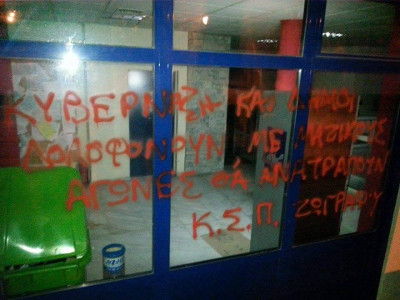 ΚΥΒΕΡΝΗΣΗ ΚΑΙ
ΔΟΛΟΦΟΝΟΥΝ ΜΕ ΜΑΖΙΚΟΥΣ
ΑΓΩΝΕΣ ΘΑ ΑΝΑΤΡΑΠΟΥΝ
Κ.Σ.Π. ΖΩΓΡΑΦΟΥ